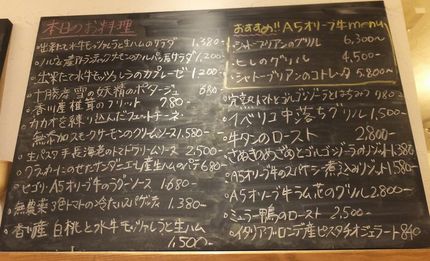 本日のお料理
・出来たて水牛モッツァレラと生ハムのサラダ 1,380-
・ノルウェー産アトランティックサーモンのカルパッチョサラダ 1,200
・出来たて水牛モッツァレラのカプレーゼ 1,200-
・十勝産 雪の妖精のポタージュ 680-
・香川産椎茸のフリット 780-
・カカオを練り込んだフェットチーネ
無添加スモークサーモンのクリームソース 1,580-
・生パスタ 手長海老のトマトクリームソース 2,500-
・クラッカーにのせたサンダニエレ産生ハムのパテ 680-
・ピゴリ A5オリーブ牛のラグーソース 1,680-
・無農薬3色トマトの冷たいスパゲッティ 1,380-
・香川産 白桃と水牛モッツァレラと生ハム
1,500-
おすすめ!! A5オリーブ牛menu
・シャトーブリアンのグリル 6,300~
・ヒレのグリル 4,500~
・シャトーブリアンのコトレッタ 5,800~
・イベリコ中落ちグリル 1,500-
・牛タンのロースト 2,800-
・さぬきのめざめとゴルゴンゾーラのリゾット 1,380
・A5オリーブ牛のスパイシー煮込みリゾット 1,580
・A5オリーブ牛ラム芯のグリル 2,800-
・ミュラー鴨のロースト 2,500-
・イタリアブロンテ産ピスタチオジェラート 840